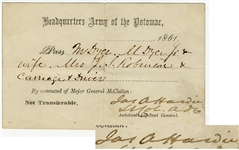 Headquarters Army of the Potomac,
1861
Pass McDyer, &
wife, Mrs J. S. Robinson &
Carriage & driver
By command of Major General McClellan:
Not Transferable.
Jas A Hardie
Assistant Adjutant General.
Jas A Hardie